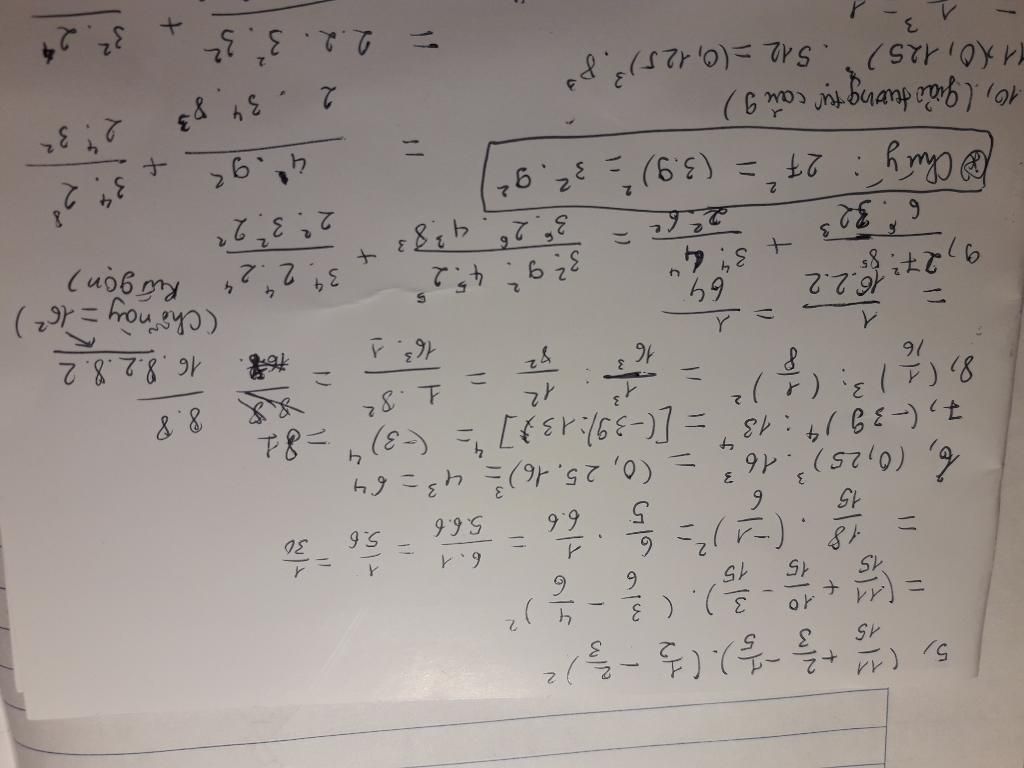 5, (11/15 + 2/3 - 1/5).(1/2 - 2/3)²
= (11/15 + 10/15 - 3/15).(3/6 - 4/6)²
= 18/15 . (-1/6)² = 6/5 . 1/6.6 = 6.1/5.6.6 = 1/5.6 = 1/30
6, (0,25)³ . 16³ = (0,25.16)³ = 4³ = 64
7, (-39)⁴ : 13⁴ = [(-39):13]⁴ = (-3)⁴ = 81
8, (1/16)³ : (1/8)² = 1³/16³ : 1²/8² = 1.8²/16³.1 = 8.8/16.8.2.8.2
(Chỗ này = 16²)
= 1/16.2.2 = 1/64
Rút gọn)
9, 27².8⁵/6⁶.32³ + 3⁴.4⁴/2².6² = 3².9².4⁵.2⁵/3⁶.2⁶.4³.8³ + 3⁴.2⁴.2⁴/2².3².2²
⊛ Chú ý: 27² = (3.9)² = 3².9²
= 4.9²/2.3⁴.8³ + 3⁴.2⁸/2⁴.3²
10, (giải tương tự câu 9)
11,(0,125)³ . 512 = (0,125)³ . 8³
= 2.2.3².3² + 3².2⁴
= 1³ = 1